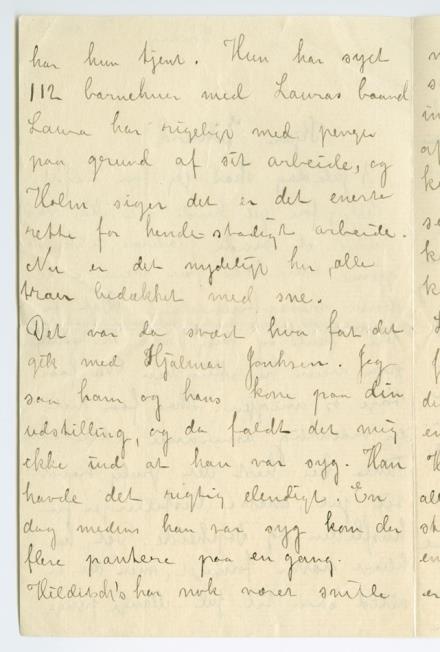 har hun tjent. Hun har syet
112 barnehuer med Lauras baand
Laura har rigeligt med penger
paa grund af sit arbeide, og
Holm siger det er det eneste
rette for hende – stadigt arbeide.
Nu er det nydeligt her, alle
træer bedækket med sne.
Det var da svært hvor fort det
gik med Hjalmar Johnsen. Jeg
saa ham og hans kone paa din
udstilling, og da faldt det mig
ikke ind at han var syg. Han
havde det rigtig elendigt. En
dag medens han var syg kom der
flere pantere paa en gang.
Kildidsch's har nok været snille